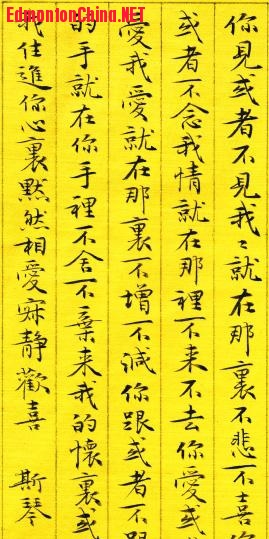 EdmontonChina.NET
你見或者不見我々就在那裏不悲不喜你
或者不念我情就在那裡不来不去你愛或
愛我愛就在那裏不增不減你跟或者不跟
的手就在你手裡不舍不棄来我的懷裏或
我住進你心裏默然相愛寂静歡喜 斯琴